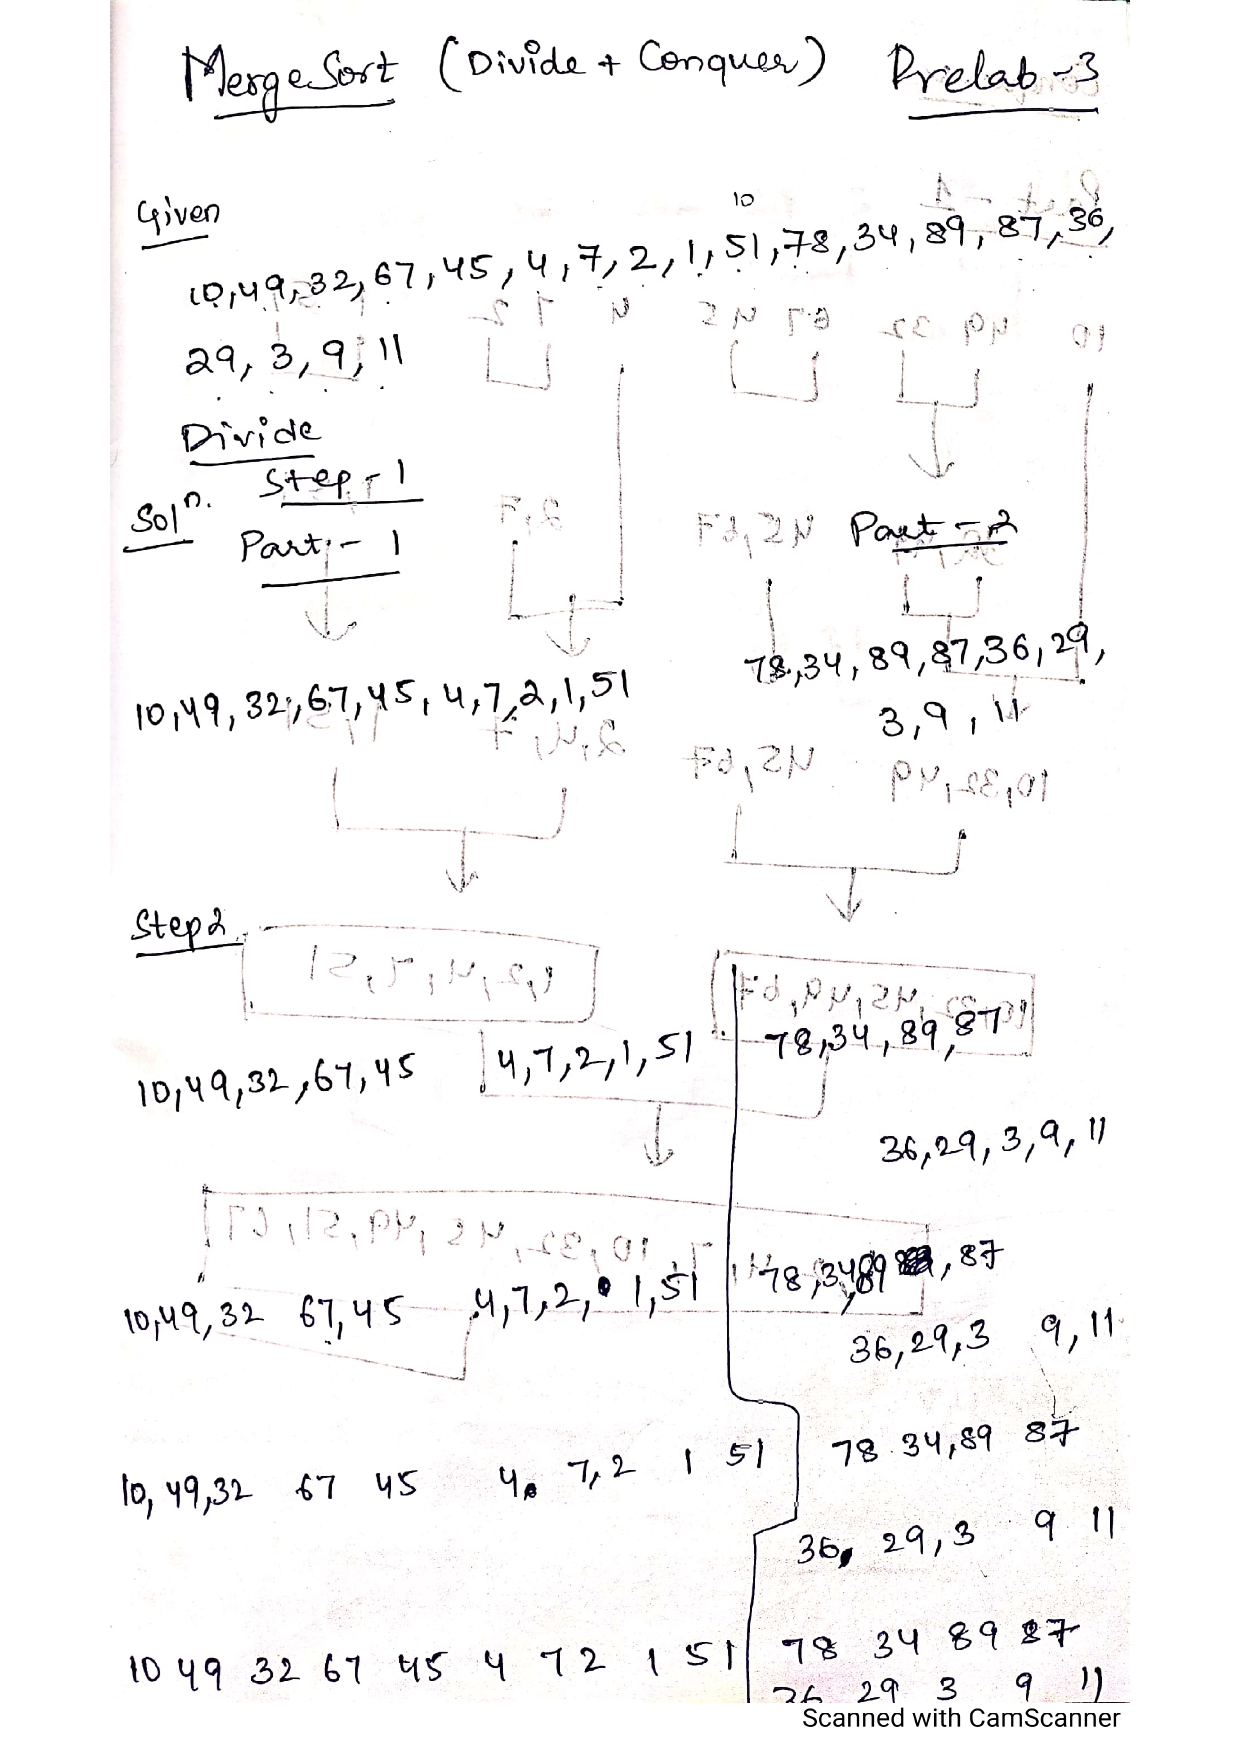 MergeSort (Divide + Conquer) Prelab-3
Given
10
10,49,32,67,45,4,7,2,1,51,78,34,89,87,36,
29, 3, 9, 11
Divide
Step-1
Soln.
Part:- 1
Part - 2
10,49,32,67,45,4,7,2,1,51
78,34,89,87,36,29,
3,9,11
Step 2
10,49,32,67,45 4,7,2,1,51 78,34,89,87
36,29,3,9,11
10,49,32 67,45 4,7,2, 1,51 78,34,89, 87
36,29,3 9,11
10, 49,32 67 45 4 7,2 1 51 78 34,89 87
36, 29,3 9 11
10 49 32 67 45 4 7 2 1 51 78 34 89 87
36 29 3 9 11
Scanned with CamScanner